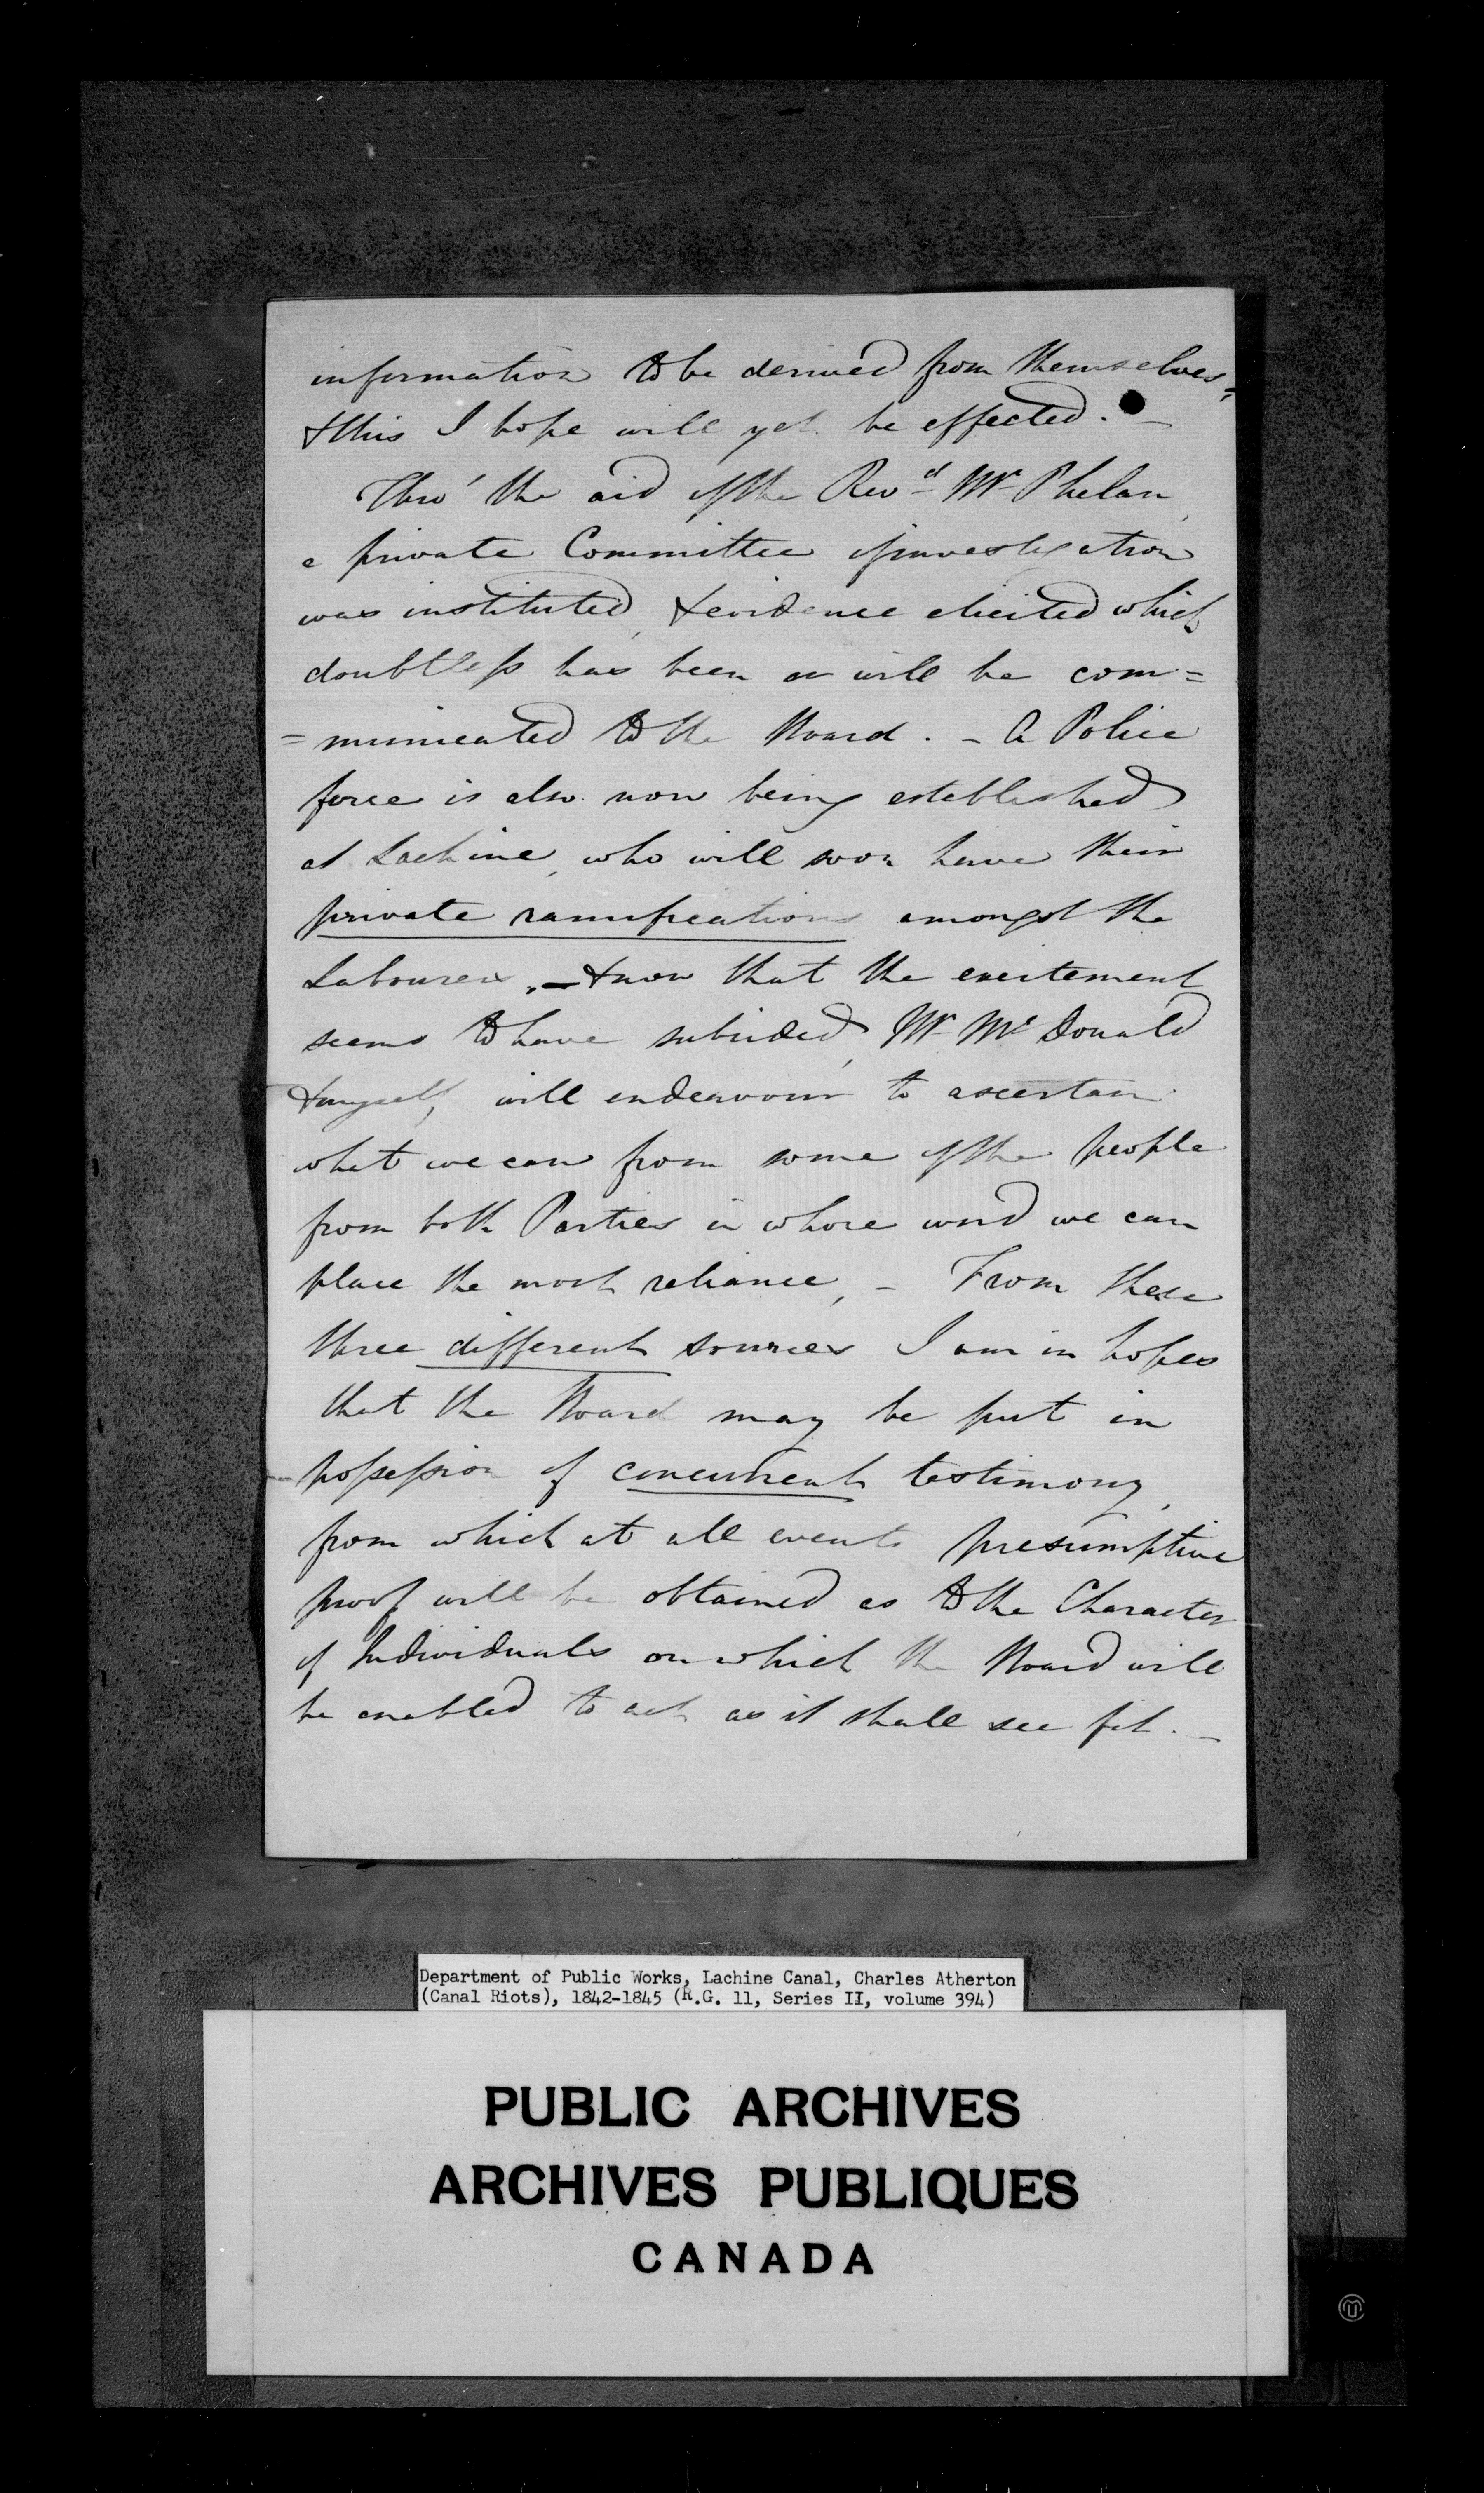 information to be derived from themselves,
& this I hope will yet be effected. –
Thro' the aid of the Revd Mr Phelan,
a private Committee of investigation
was instituted, & evidence elicited which
doubtless has been or will be com=
=municated to the Board. – A Police
force is also now being established
at Lachine, who will soon have their
private ramifications amongst the
Labourers, – & now that the excitement
seems to have subsided, Mr McDonald
& myself, will endeavour to ascertain
what we can from some of the people
from both Parties in whose word we can
place the most reliance, – From these
three different sources I am in hopes
that the Board may be put in
possession of concurrent testimony,
from which at all events presumptive
proof will be obtained as to the Character
of Individuals on which the Board will
be enabled to act as it shall see fit. –
Department of Public Works, Lachine Canal, Charles Atherton
(Canal Riots), 1842-1845 (R.G. 11, Series II, volume 394)
PUBLIC ARCHIVES
ARCHIVES PUBLIQUES
CANADA